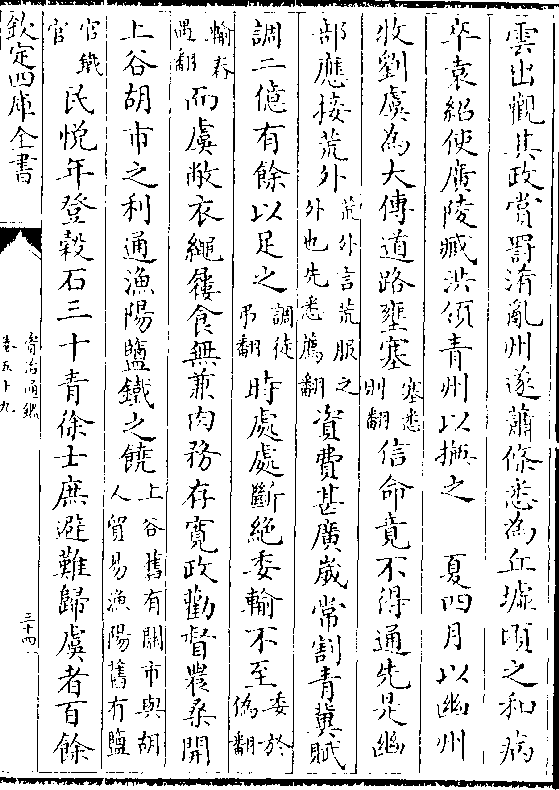 雲出觀其政賞罰淆亂州遂蕭條悉為丘墟頃之和病
卒袁紹使廣陵臧洪領青州以撫之　夏四月以幽州
牧劉虞為太傅道路壅塞塞悉則翻信命竟不得通先是幽
部應接荒外荒外言荒服之外也先悉薦翻資費甚廣歲常割青冀賦
調二億有餘以足之調徒弔翻時處處斷絶委輸不至委於偽翻
輸春遇翻而虞敝衣繩屨食無兼肉務存寛政勸督農桑開
上谷胡市之利通漁陽鹽鐵之饒上谷舊有關市與胡人貿易漁陽舊有鹽
官鐵官民悅年登穀石三十青徐士庶避難歸虞者百餘
欽定四庫全書
資治通鑑
卷五十九
三十四